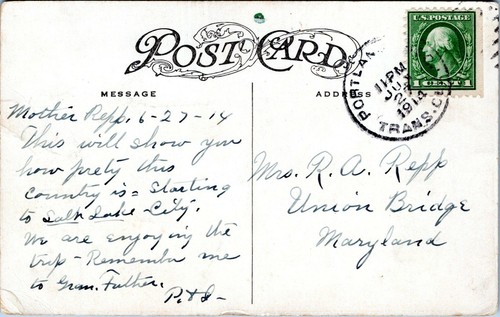 POST CARD
MESSAGE
ADDRESS
U.S. POSTAGE
PORTLAN
11 PM
TRANS.C
Mother Repp, 6-27-14
This will show you
how prety this
country is = Starting
to Salk Lake City.
We are enjoying the
trip - Remember me
to Gran. Father.
Mrs. R. A. Repp
Union Bridge
Maryland